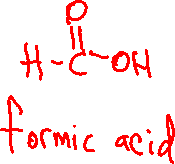 O
H-C-OH
formic acid